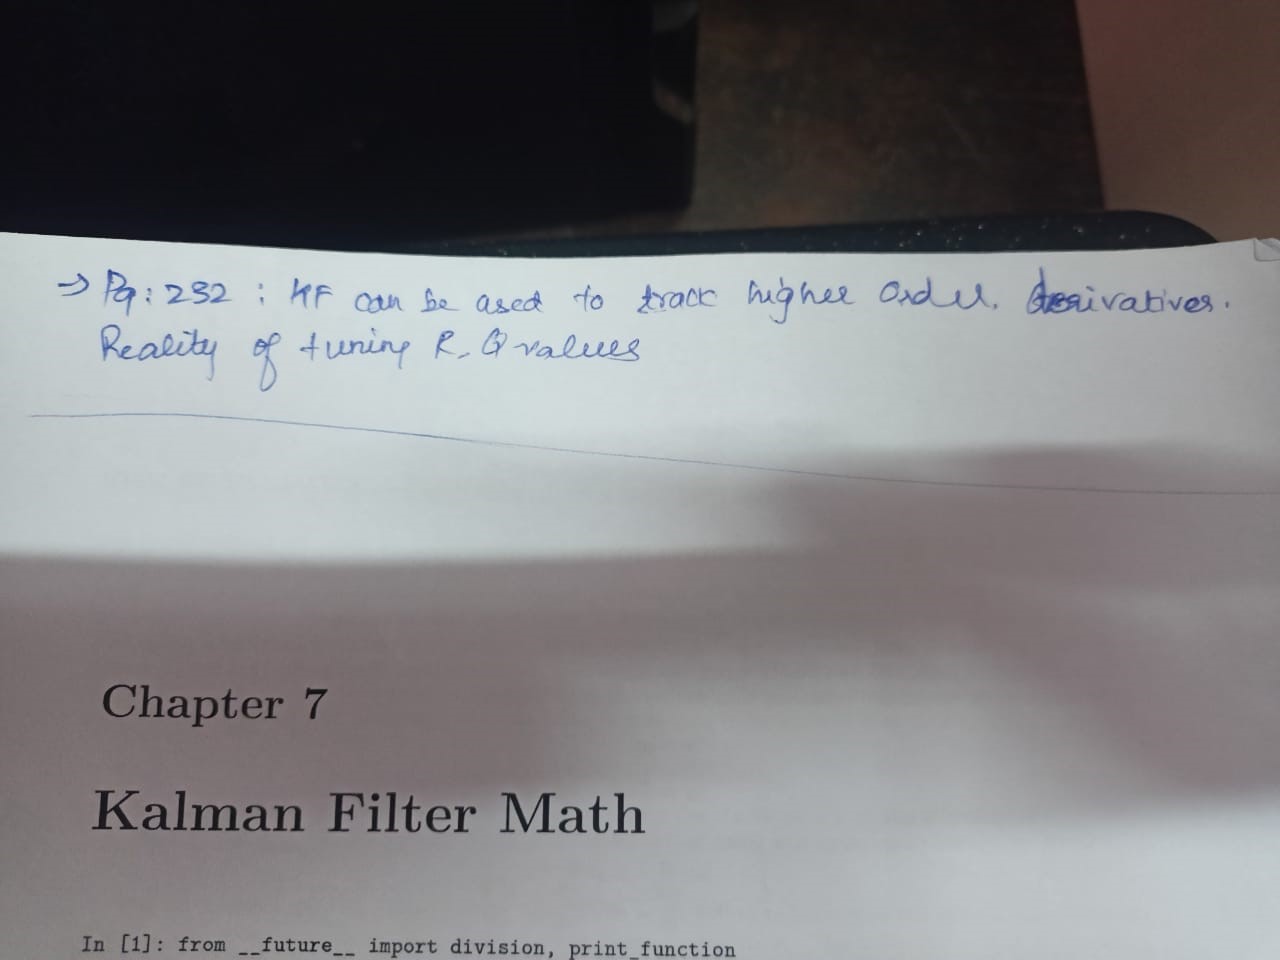 → Pg: 232 : KF can be used to track higher order. derivatives.
Reality of tuning R, Q values
Chapter 7
Kalman Filter Math
In [1]: from __future__ import division, print_function